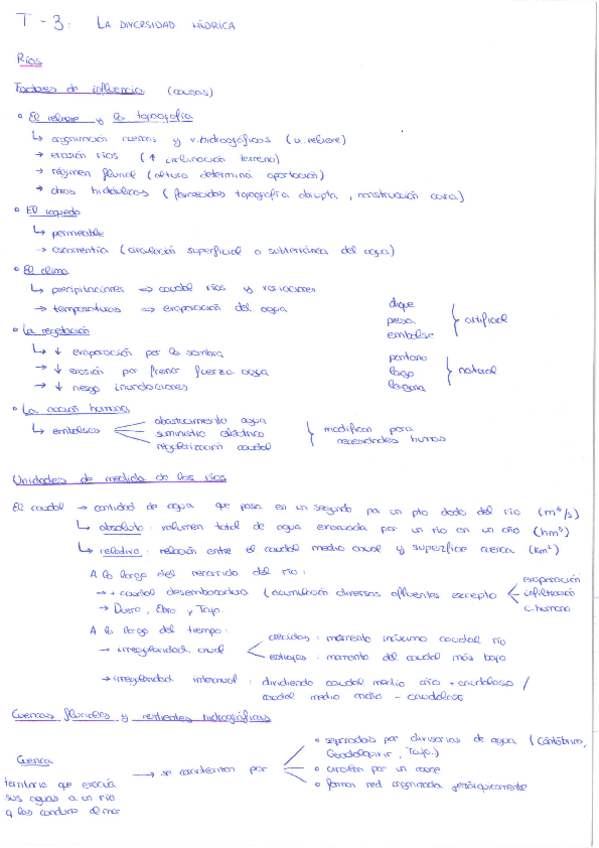 T-3: LA DIVERSIDAD HÍDRICA
Ríos
Factores de influencia (causas)
El relieve y la topografía
↳ organización cuencas y v.hidrográficas (u. relieve)
→ erosión ríos (↑ inclinación terreno)
→ régimen fluvial (altura determina aportación)
→ obras hidráulicas (favorecidas topografía abrupta, construcción cara)
El roquedo
↳ permeable
→ escorrentía (circulación superficial o subterránea del agua)
El clima
↳ precipitaciones ⇒ caudal ríos y variaciones
→ temperaturas ⇒ evaporación del agua
dique
presa
embalse
artificial
pantano
lago
laguna
natural
La vegetación
↳ ↓ evaporación por la sombra
→ ↓ erosión por frenar fuerza agua
→ ↓ riesgo inundaciones
La acción humana
↳ embalses
abastecimiento agua
suministro eléctrico
regularización caudal
modifican para
necesidades humas
Unidades de medida de los ríos
El caudal → cantidad de agua que pasa en un segundo por un pto dado del río (m³/s)
↳ absoluto: volumen total de agua evacuada por un río en un año (hm³)
↳ relativo: relación entre el caudal medio anual y superficie cuenca (km²)
A lo largo del recorrido del río:
→ + caudal desembocadura (acumulación diversos afluentes excepto
evaporación
infiltración
c.humano
→ Duero, Ebro y Tajo.
A lo largo del tiempo:
→ irregularidad anual
crecidas: momento máximo caudal río
estiajes: momento del caudal más bajo
→ irregularidad interanual: dividiendo caudal medio año + caudaloso /
caudal medio año - caudaloso
Cuencas fluviales y vertientes hidrográficas
Cuenca
territorio que evacúa
sus aguas a un río
q las conduce al mar
→ se caracterizan por
separadas por divisorias de agua (Cantábrico,
Guadalquivir, Tajo.)
circulan por un cauce
forman red organizada jerárquicamente